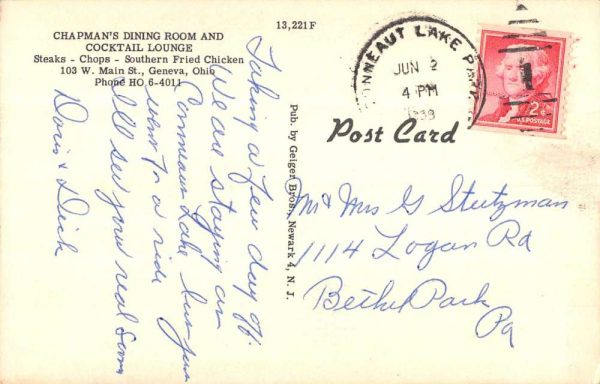 CHAPMAN'S DINING ROOM AND
COCKTAIL LOUNGE
Steaks - Chops - Southern Fried Chicken
103 W. Main St., Geneva, Ohio
Phone HO 6-4011
13,221F
Taking a few day off
We are staying on
Conneaut Lake but just
went for a ride
Ill see you real soon
Doris & Dick
Pub. by Geiger Bros., Newark 4, N. J.
Post Card
CONNEAUT LAKE PARK
JUN 2
4 PM
2¢
U.S. POSTAGE
Mr & Mrs G Stutzman
1114 Logan Rd
Bethel Park
Pa